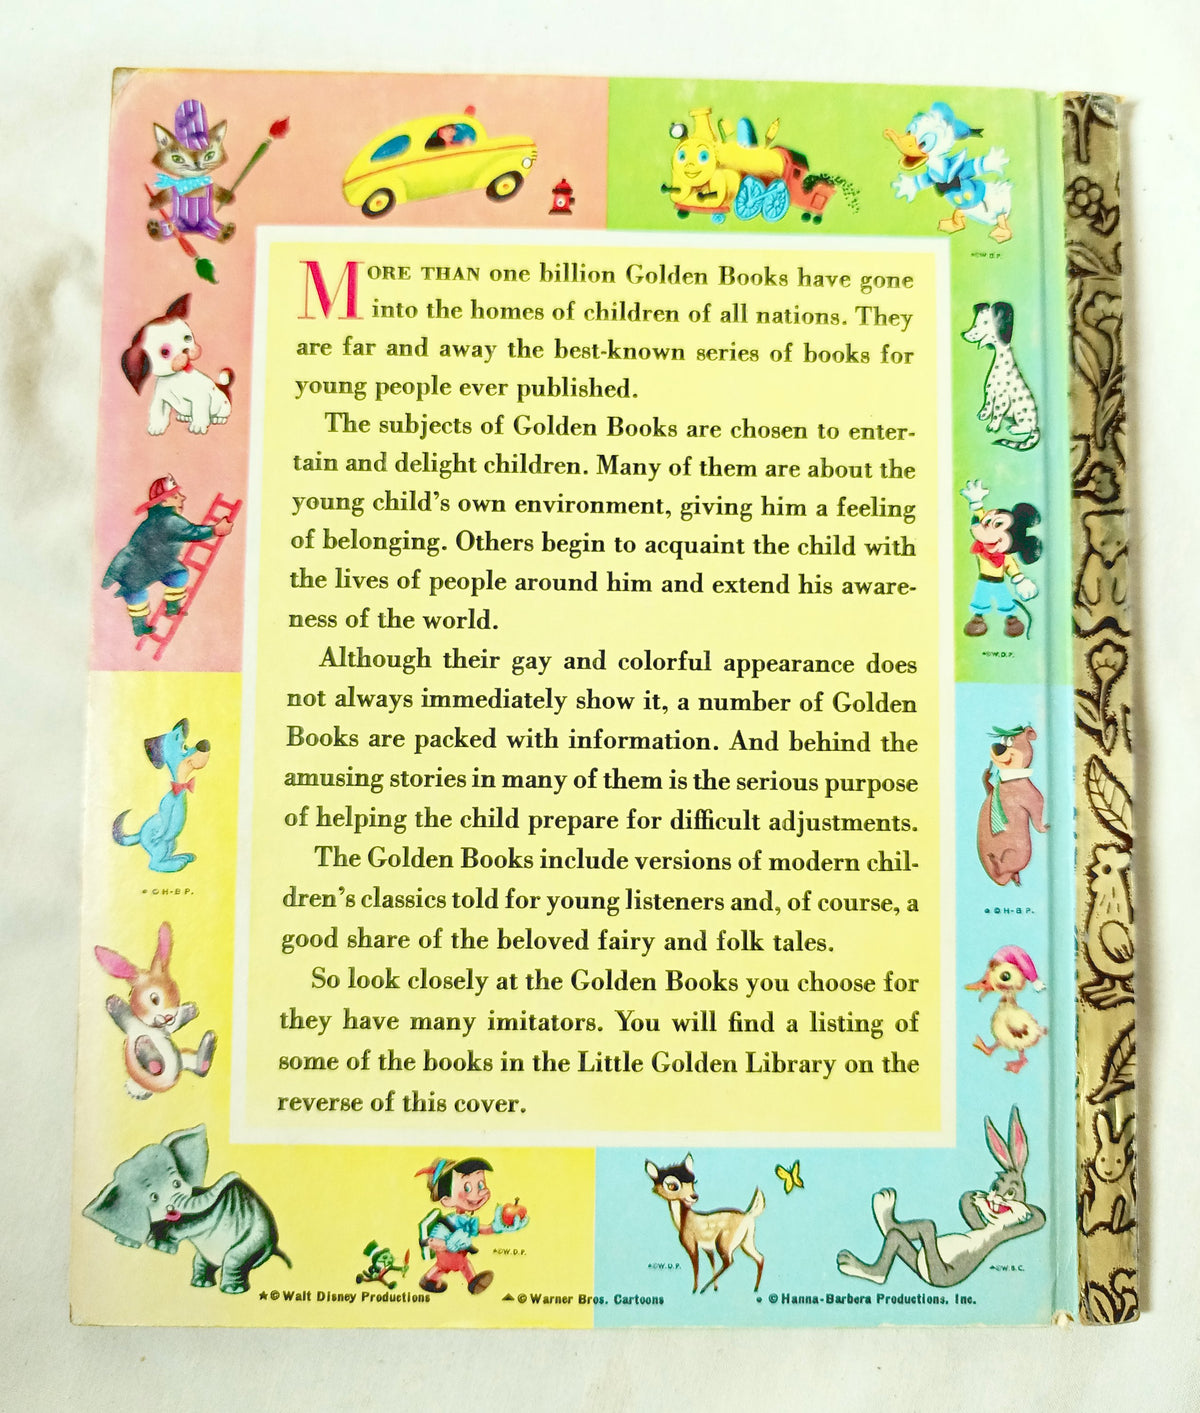 MORE THAN one billion Golden Books have gone
into the homes of children of all nations. They
are far and away the best-known series of books for
young people ever published.
The subjects of Golden Books are chosen to enter-
tain and delight children. Many of them are about the
young child's own environment, giving him a feeling
of belonging. Others begin to acquaint the child with
the lives of people around him and extend his aware-
ness of the world.
Although their gay and colorful appearance does
not always immediately show it, a number of Golden
Books are packed with information. And behind the
amusing stories in many of them is the serious purpose
of helping the child prepare for difficult adjustments.
The Golden Books include versions of modern chil-
dren's classics told for young listeners and, of course, a
good share of the beloved fairy and folk tales.
So look closely at the Golden Books you choose for
they have many imitators. You will find a listing of
some of the books in the Little Golden Library on the
reverse of this cover.
★©W.D.P.
★©W.D.P.
●©H-B P.
●©H-B P.
★©W.D.P.
★©W.D.P.
▲©W.B.C.
★© Walt Disney Productions
▲ © Warner Bros. Cartoons
● © Hanna-Barbera Productions, Inc.